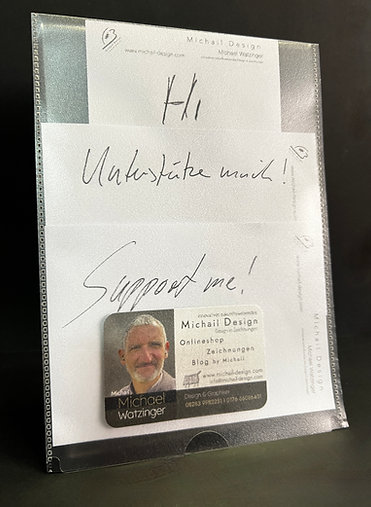 Michail Design
www.michail-design.com
Michael Watzinger
Hi
Unterstütze mich!
Support me!
Michail Design
Michael Watzinger
Michail Design
Design in Zeichnungen
Onlineshop
Zeichnungen
Blog by Michail
www.michail-design.com
info@michail-design.com
Michail
Michael
Watzinger
Design & Graphiker